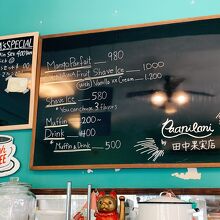 SPECIAL
Mango Parfait — 980
Fruit Shave Ice — 1.000
(with) Vanilla ice Cream — 1.200
Shave Ice — 580
* You can choose 3 flavors
Muffin — 200~
Drink — 400
* Muffin & Drink — 500
by 田中果実店